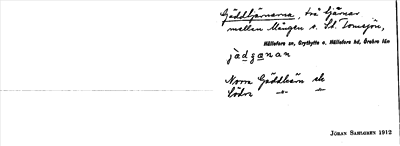 Gäddtjärnarna, två tjärnar
mellan Mången o. St. Tomsjön,
Hällefors sn, Grythytte o. Hällefors hd, Örebro län
jàdganan
Norra Gäddtjärn
Södra —"—
JÖRAN SAHLGREN 1912